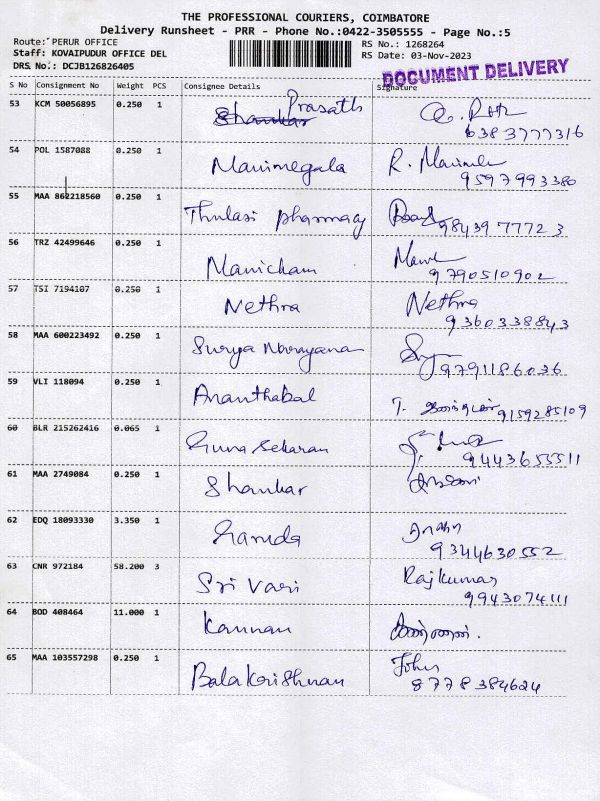 THE PROFESSIONAL COURIERS, COIMBATORE
Delivery Runsheet - PRR - Phone No.:0422-3505555 - Page No.:5
Route: PERUR OFFICE
RS No.: 1268264
Staff: KOVAIPUDUR OFFICE DEL
RS Date: 03-Nov-2023
DRS No.: DCJB126826405
DOCUMENT DELIVERY
S No Consignment No Weight PCS Consignee Details Signature
53 KCM 50056895 0.250 1 Shankar Prasath
6383777316
54 POL 1587088 0.250 1 Manimegala R.
9597993380
55 MAA 862218560 0.250 1 Thulasi pharmacy
9843977723
56 TRZ 42499646 0.250 1 Manickam
9790510902
57 TSI 7194107 0.250 1 Nethra Nethra
9360338843
58 MAA 600223492 0.250 1 Surya Narayana
9791186036
59 VLI 118094 0.250 1 Ananthabal T. 9159285109
60 BLR 215262416 0.065 1 Guna sekaran
9443655511
61 MAA 2749084 0.250 1 Shankar
62 EDQ 18093330 3.350 1 Garuda
9344630552
63 CNR 972184 58.200 3 Sri Vari Rajkumar
9943074111
64 BOD 408464 11.000 1 Kannan கண்ணன்.
65 MAA 103557298 0.250 1 Balakrishnan John
8778384624